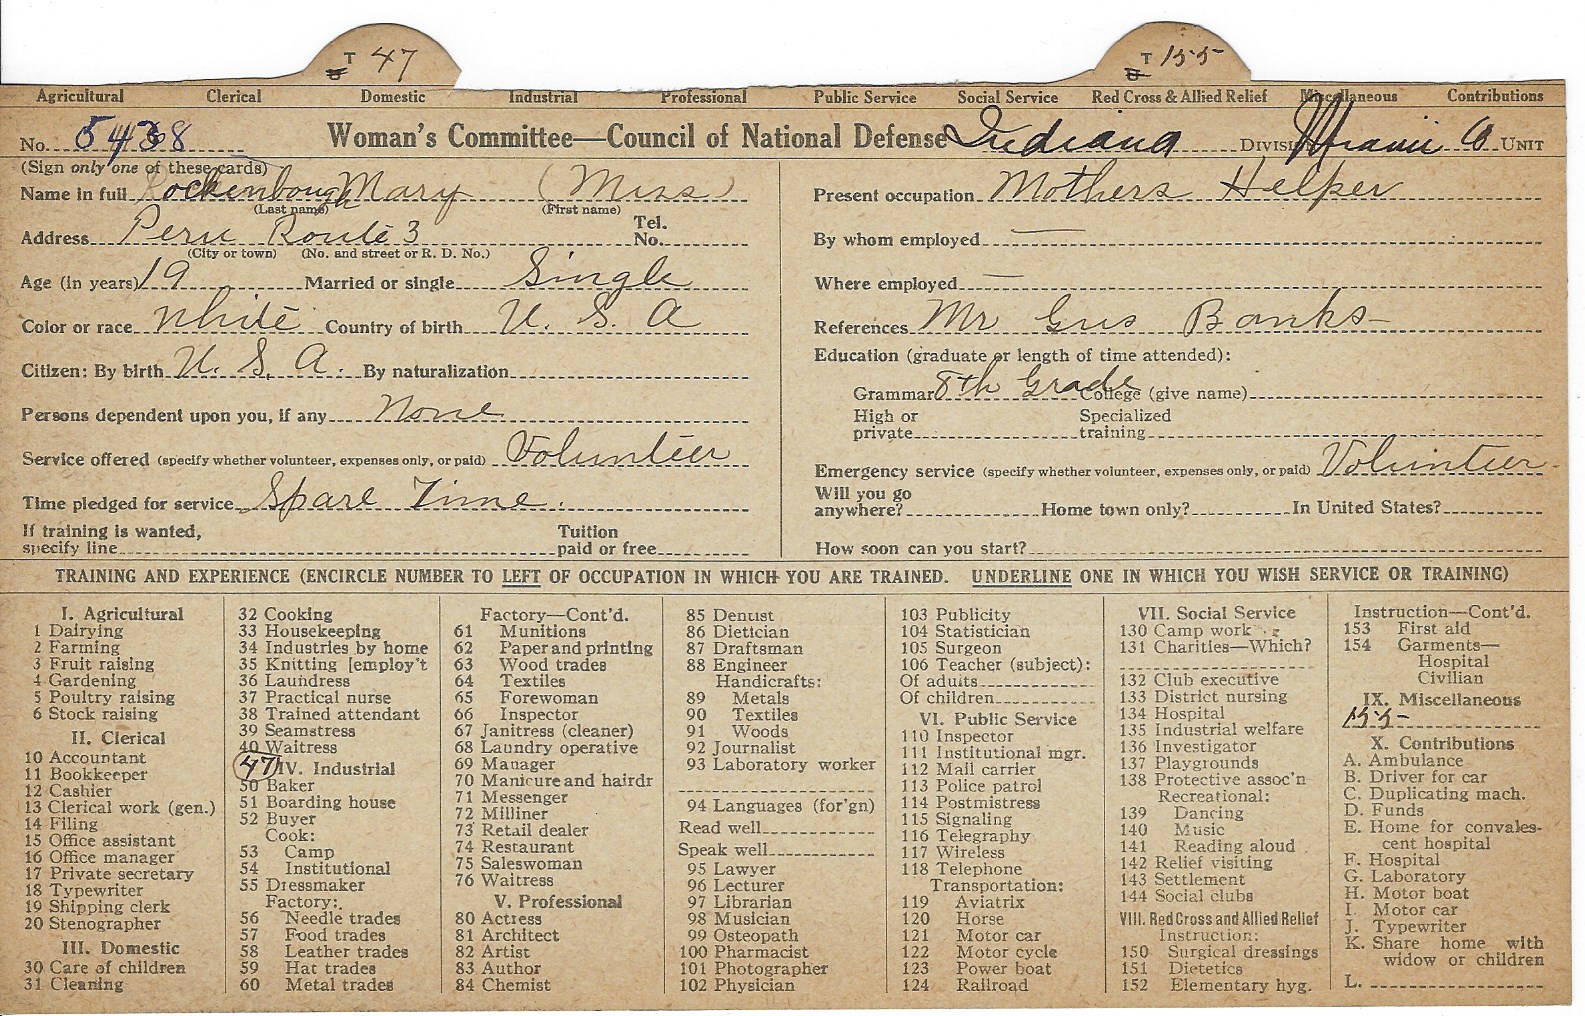 T 47
T 155
Agricultural Clerical Domestic Industrial Professional Public Service Social Service Red Cross & Allied Relief Miscellaneous Contributions
No. 5438 Woman's Committee—Council of National Defense Indiana DIVISION Miami Co UNIT
(Sign only one of these cards)
Name in full Rockenbough Mary (Miss)
(Last name) (First name)
Address Peru Route 3 Tel. No.
(City or town) (No. and street or R. D. No.)
Age (in years) 19 Married or single Single
Color or race White Country of birth U. S. A
Citizen: By birth U. S. A. By naturalization
Persons dependent upon you, if any None
Service offered (specify whether volunteer, expenses only, or paid) Volunteer
Time pledged for service Spare Time.
If training is wanted, specify line Tuition paid or free
Present occupation Mothers Helper
By whom employed —
Where employed —
References Mr Gus Banks
Education (graduate or length of time attended):
Grammar 8th Grade College (give name)
High or private Specialized training
Emergency service (specify whether volunteer, expenses only, or paid) Volunteer
Will you go anywhere? Home town only? In United States?
How soon can you start?
TRAINING AND EXPERIENCE (ENCIRCLE NUMBER TO LEFT OF OCCUPATION IN WHICH YOU ARE TRAINED. UNDERLINE ONE IN WHICH YOU WISH SERVICE OR TRAINING)
I. Agricultural
1 Dairying
2 Farming
3 Fruit raising
4 Gardening
5 Poultry raising
6 Stock raising
II. Clerical
10 Accountant
11 Bookkeeper
12 Cashier
13 Clerical work (gen.)
14 Filing
15 Office assistant
16 Office manager
17 Private secretary
18 Typewriter
19 Shipping clerk
20 Stenographer
III. Domestic
30 Care of children
31 Cleaning
32 Cooking
33 Housekeeping
34 Industries by home
35 Knitting [employ't
36 Laundress
37 Practical nurse
38 Trained attendant
39 Seamstress
40 Waitress
47 IV. Industrial
50 Baker
51 Boarding house
52 Buyer
Cook:
53 Camp
54 Institutional
55 Dressmaker
Factory:
56 Needle trades
57 Food trades
58 Leather trades
59 Hat trades
60 Metal trades
Factory—Cont'd.
61 Munitions
62 Paper and printing
63 Wood trades
64 Textiles
65 Forewoman
66 Inspector
67 Janitress (cleaner)
68 Laundry operative
69 Manager
70 Manicure and hairdr
71 Messenger
72 Milliner
73 Retail dealer
74 Restaurant
75 Saleswoman
76 Waitress
V. Professional
80 Actress
81 Architect
82 Artist
83 Author
84 Chemist
85 Dentist
86 Dietician
87 Draftsman
88 Engineer
Handicrafts:
89 Metals
90 Textiles
91 Woods
92 Journalist
93 Laboratory worker
94 Languages (for'gn)
Read well
Speak well
95 Lawyer
96 Lecturer
97 Librarian
98 Musician
99 Osteopath
100 Pharmacist
101 Photographer
102 Physician
103 Publicity
104 Statistician
105 Surgeon
106 Teacher (subject):
Of adults
Of children
VI. Public Service
110 Inspector
111 Institutional mgr.
112 Mail carrier
113 Police patrol
114 Postmistress
115 Signaling
116 Telegraphy
117 Wireless
118 Telephone
Transportation:
119 Aviatrix
120 Horse
121 Motor car
122 Motor cycle
123 Power boat
124 Railroad
VII. Social Service
130 Camp work
131 Charities—Which?
132 Club executive
133 District nursing
134 Hospital
135 Industrial welfare
136 Investigator
137 Playgrounds
138 Protective assoc'n
Recreational:
139 Dancing
140 Music
141 Reading aloud
142 Relief visiting
143 Settlement
144 Social clubs
VIII. Red Cross and Allied Relief
Instruction:
150 Surgical dressings
151 Dietetics
152 Elementary hyg.
Instruction—Cont'd.
153 First aid
154 Garments—
Hospital
Civilian
IX. Miscellaneous
155
X. Contributions
A. Ambulance
B. Driver for car
C. Duplicating mach.
D. Funds
E. Home for convales-
cent hospital
F. Hospital
G. Laboratory
H. Motor boat
I. Motor car
J. Typewriter
K. Share home with
widow or children
L.